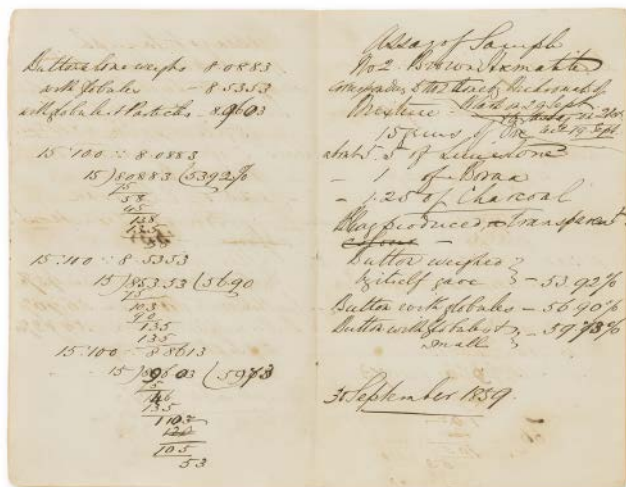 Button alone weighs - 8.0883
with globules - 8.5353
with globules & Particles - 8.9603
15:100 :: 8.0883
15)80883(5392%
75
58
45
138
135
15:100 :: 8.5353
15)85353(5690
75
103
90
135
135
15:100 :: 8.8613
15)89603(5973
75
146
135
110
105
53
Assay of Sample
No 2. Brown Hematite
Mixture
15 gms of Ore
about 5. of Limestone
- 1 of Borax
- 1.25 of Charcoal
Slag produced transparent
Button weighed
by itself gave } - 53.92%
Button with globules - 56.90%
Button with globules &
small } - 59.73%
30 September 1859.